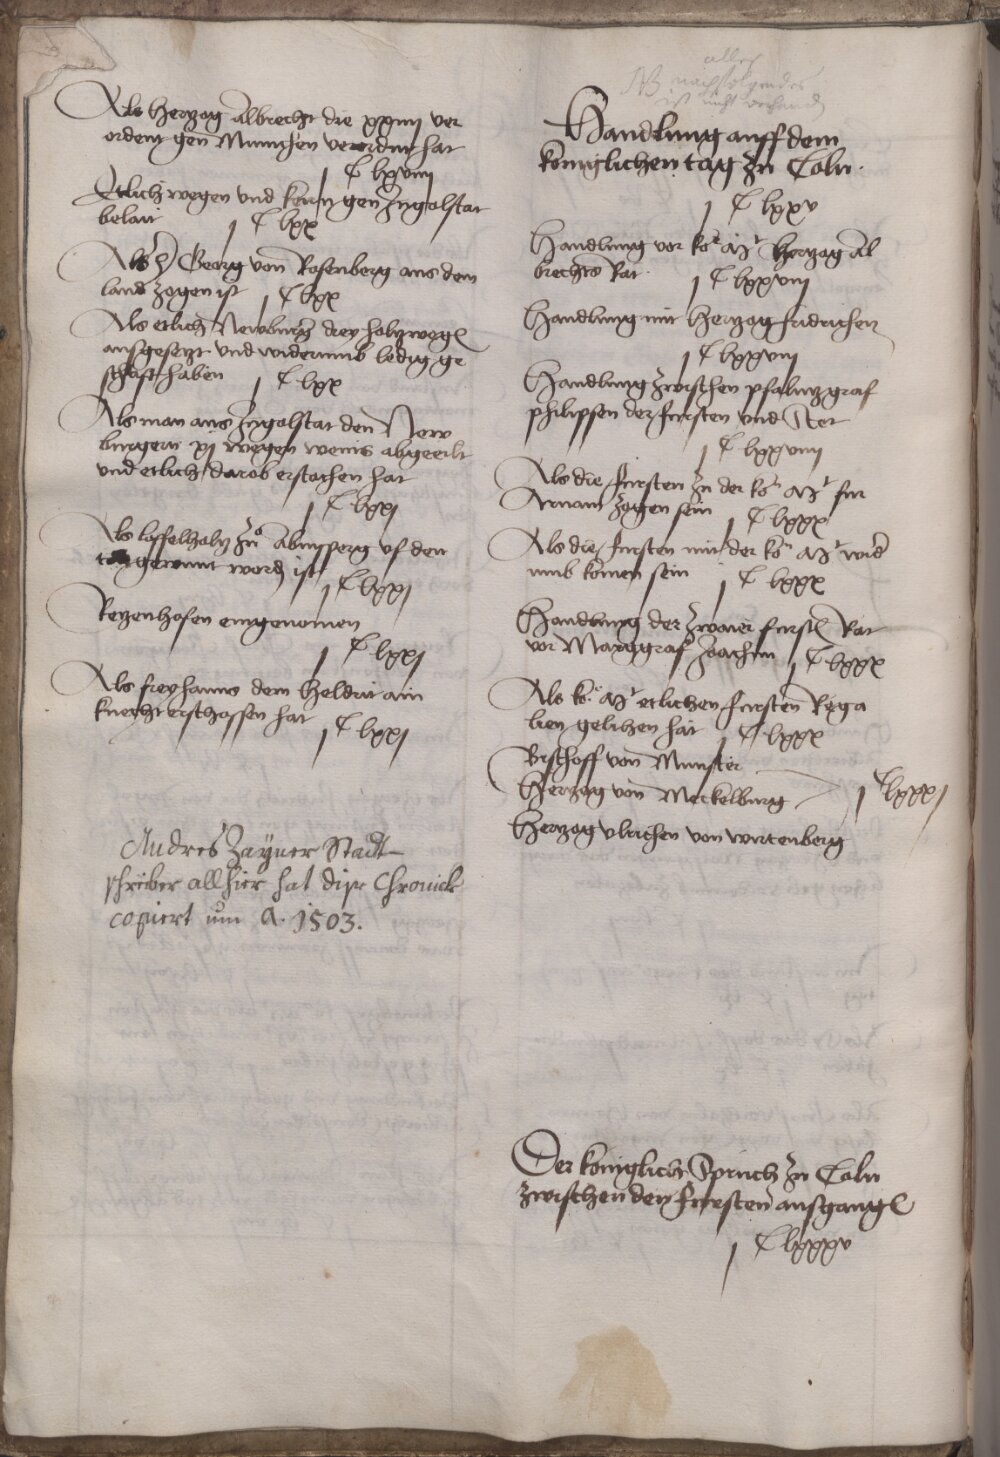 Als Hertzog Albrecht die xxiiii ver
ordent gen Munichen verordnet hat
j C lxviiii
Etlich wegen und kern gen Ingolstat
belait j C lxx
Als Georg von Rosenberg aus dem
land zogen ist j C lxx
Als etlich Newburg drey holtzwegl
ausgesetzt und widerumb ledig ge
schafft haben j C lxx
Als man aus Ingolstat den New
burgern xj wegen weins abgeeilt
und etlich darob erstochen hat
j C lxxj
Als loffelholtz zu Abnsperg uf den
gerennt word ist
j C lxxj
Retzenhofen eingenomen
j C lxxj
Als freyhanns dem Heldrit ain
knecht erschossen hat
j C lxxj
Andres Zayner Stadt-
schreiber allhier hat dise Chronick
copiert um A. 1503.
alles
NB nachfolgendes
ist nicht vorhand
Handlung auff dem
koniglichen tag zu Coln.
j C lxxv
Handlung vor ko. M. Hertzog Al
brechts Rat.
j C lxxviij
Handlung mit Hertzog fridrichen
j C lxxviij
Handlung zwischen pfaltzgraf
philippsen der fursten und Ret
j C lxxviiij
Als die fursten zu der ko. M. fur
Arnam zogen sein j C lxxx
Als die fursten mit der ko. M. wid
umb komen sein j C lxxx
Handlung der zwaier furstl Rat
vor Marggraf Joachim j C lxxx
Als ko. M. etlichen fursten Rega
lien gelihen hat j C lxxx
Bischoff von Munster
Hertzog von Meckelburg j C lxxxj
Hertzog Ulrichen von wirtenberg
Der koniglich Spruch zu Coln
zwischen den fursten ausgangl
j C lxxxv